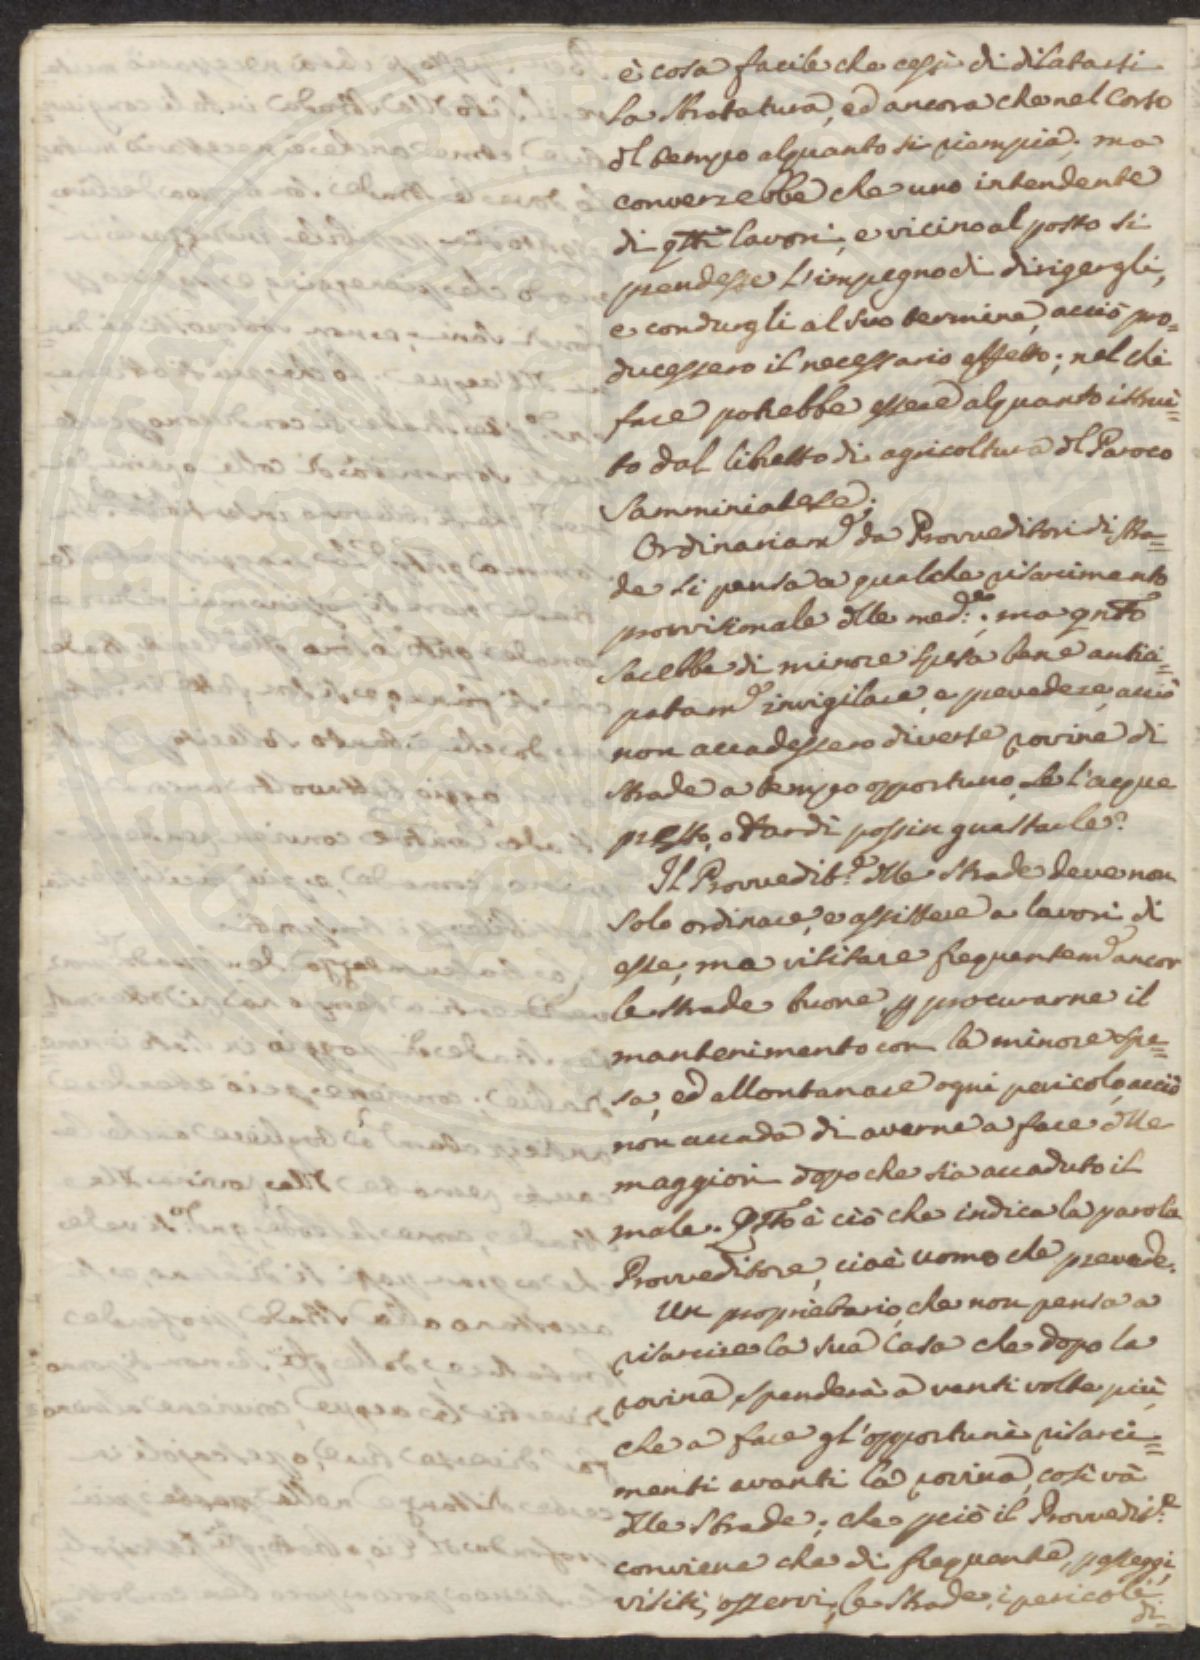 è cosa facile che cessi di dilatarsi
la Strotatura, ed ancora che nel Corso
dl tempo alquanto si riempia; ma
converrebbe che uno intendente
di qsti lavori, e vicino al posto si
prendesse l'impegno di dirigergli,
e condurgli al suo termine, acciò pro=
ducessero il necessario effetto; nel che
fare potrebbe essere alquanto istrui=
to dal libretto di agricoltura dl Paroco
Samminiatese;
Ordinariamte da Provveditori di stra=
de si pensa a qualche risarcimento
provvisionale dlle med:e; ma qnto
sarebbe di minore spesa bene antici=
patamte invigilare, e prevedere, acciò
non accadessero diverse rovine di
strade a tempo opportuno, se l'acque
presto, o tardi possin guastarle?
Il Provvedit:e dlle strade deve non
solo ordinare, e assistere a lavori di
esse; ma visitare frequentemte ancor
le strade buone, p procurarne il
mantenimento con la minore spe=
sa, ed allontanare ogni pericolo, acciò
non accada di averne a fare dlle
maggiori dopo che sia accaduto il
male. Qsto è ciò che indica la parola
Provveditore, cioè uomo che prevede.
Un proprietario, che non pensa a
risarcire la sua Casa che dopo la
rovina, spenderà a venti volte più,
che a fare gl'opportuni risarci=
menti avanti la rovina, così và
dlle strade; che pciò il Provvedit:e
conviene che di frequente, passeggi,
visiti, osservi, le strade, i pericoli
di=